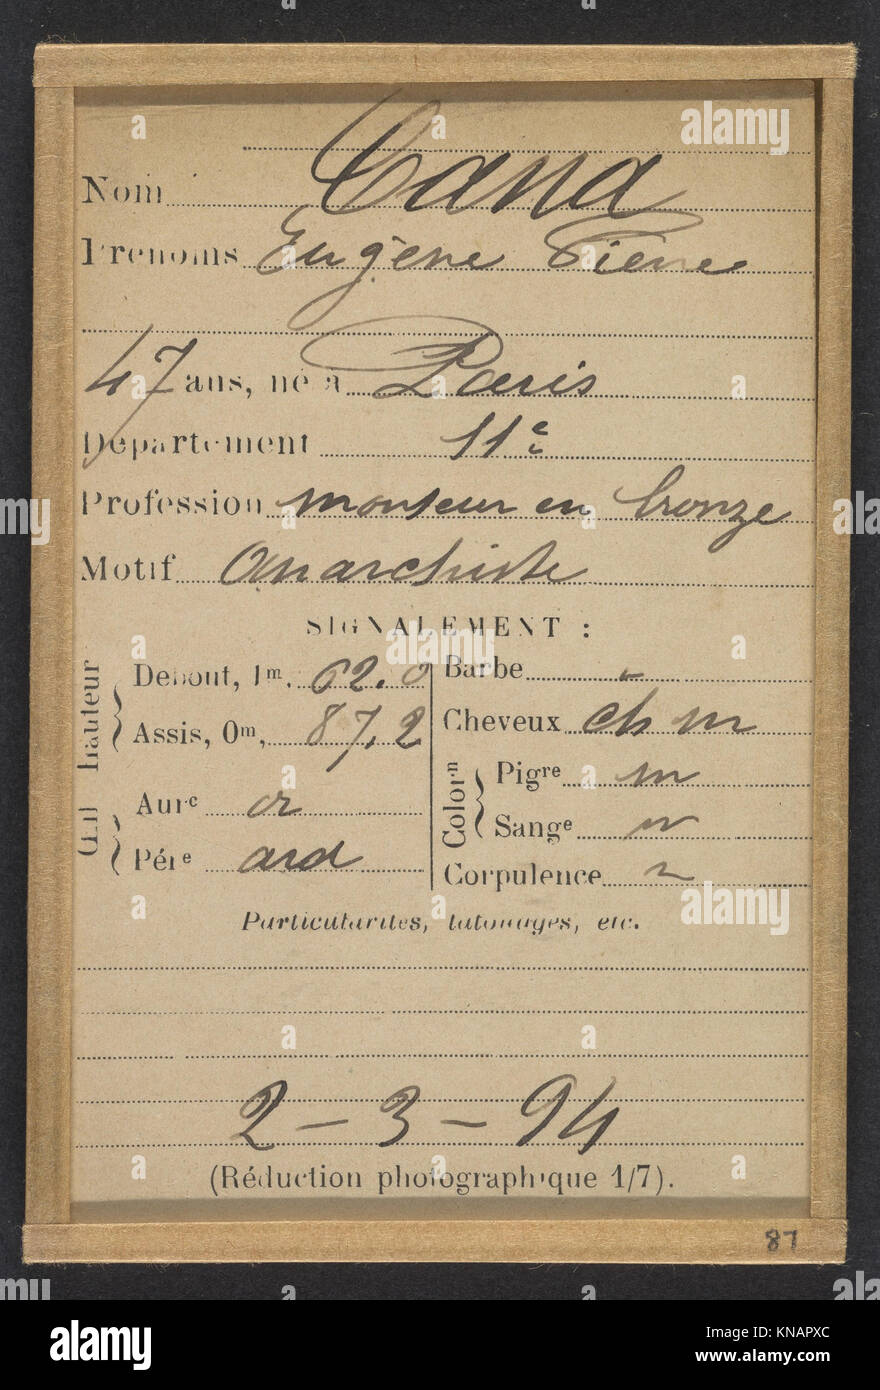 Nom Cana
Prénoms Eugène Pierre
47 ans, né à Paris
Département 11e
Profession monteur en bronze
Motif Anarchiste
SIGNALEMENT :
Œil hauteur
Debout, 1m, 62.0
Assis, 0m, 87,2
Aurc cr
Pére ard
Barbe
Cheveux ch m
Colorn
Pigre m
Sange m
Corpulence
Particularités, tatouages, etc.
2-3-94
(Réduction photographique 1/7).
87
alamy
Image ID: KNAPXC
www.alamy.com